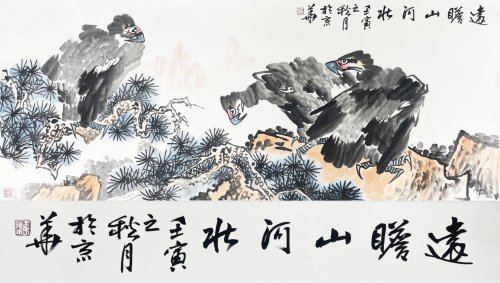 遠瞻山河壮
壬寅
之
秋月
於京
華
遠瞻山河壮
壬寅
之
秋月
於京
華